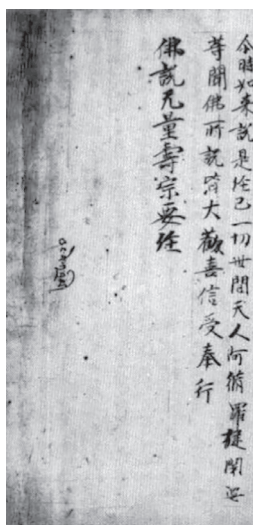 今時如来說是経已一切世間天人阿脩羅揵闥婆
等聞佛所說皆大歡喜信受奉行
佛說无量壽宗要経